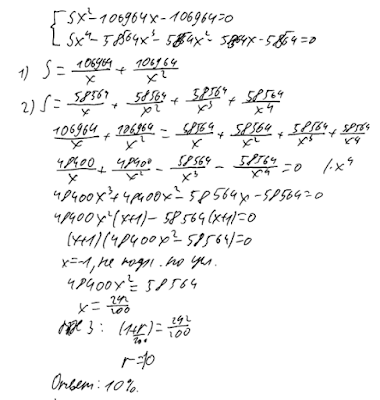 Sx² - 106964x - 106964 = 0
Sx⁴ - 58564x³ - 58564x² - 58564x - 58564 = 0
1) S = 106964/x + 106964/x²
2) S = 58564/x + 58564/x² + 58564/x³ + 58564/x⁴
106964/x + 106964/x² = 58564/x + 58564/x² + 58564/x³ + 58564/x⁴
48400/x + 48400/x² - 58564/x³ - 58564/x⁴ = 0 /·x⁴
48400x³ + 48400x² - 58564x - 58564 = 0
48400x²(x+1) - 58564(x+1) = 0
(x+1)(48400x² - 58564) = 0
x = -1, не подх. по усл.
48400x² = 58564
x = 242/200
3: (1+r/100) = 242/200
r = 10
Ответ: 10%.